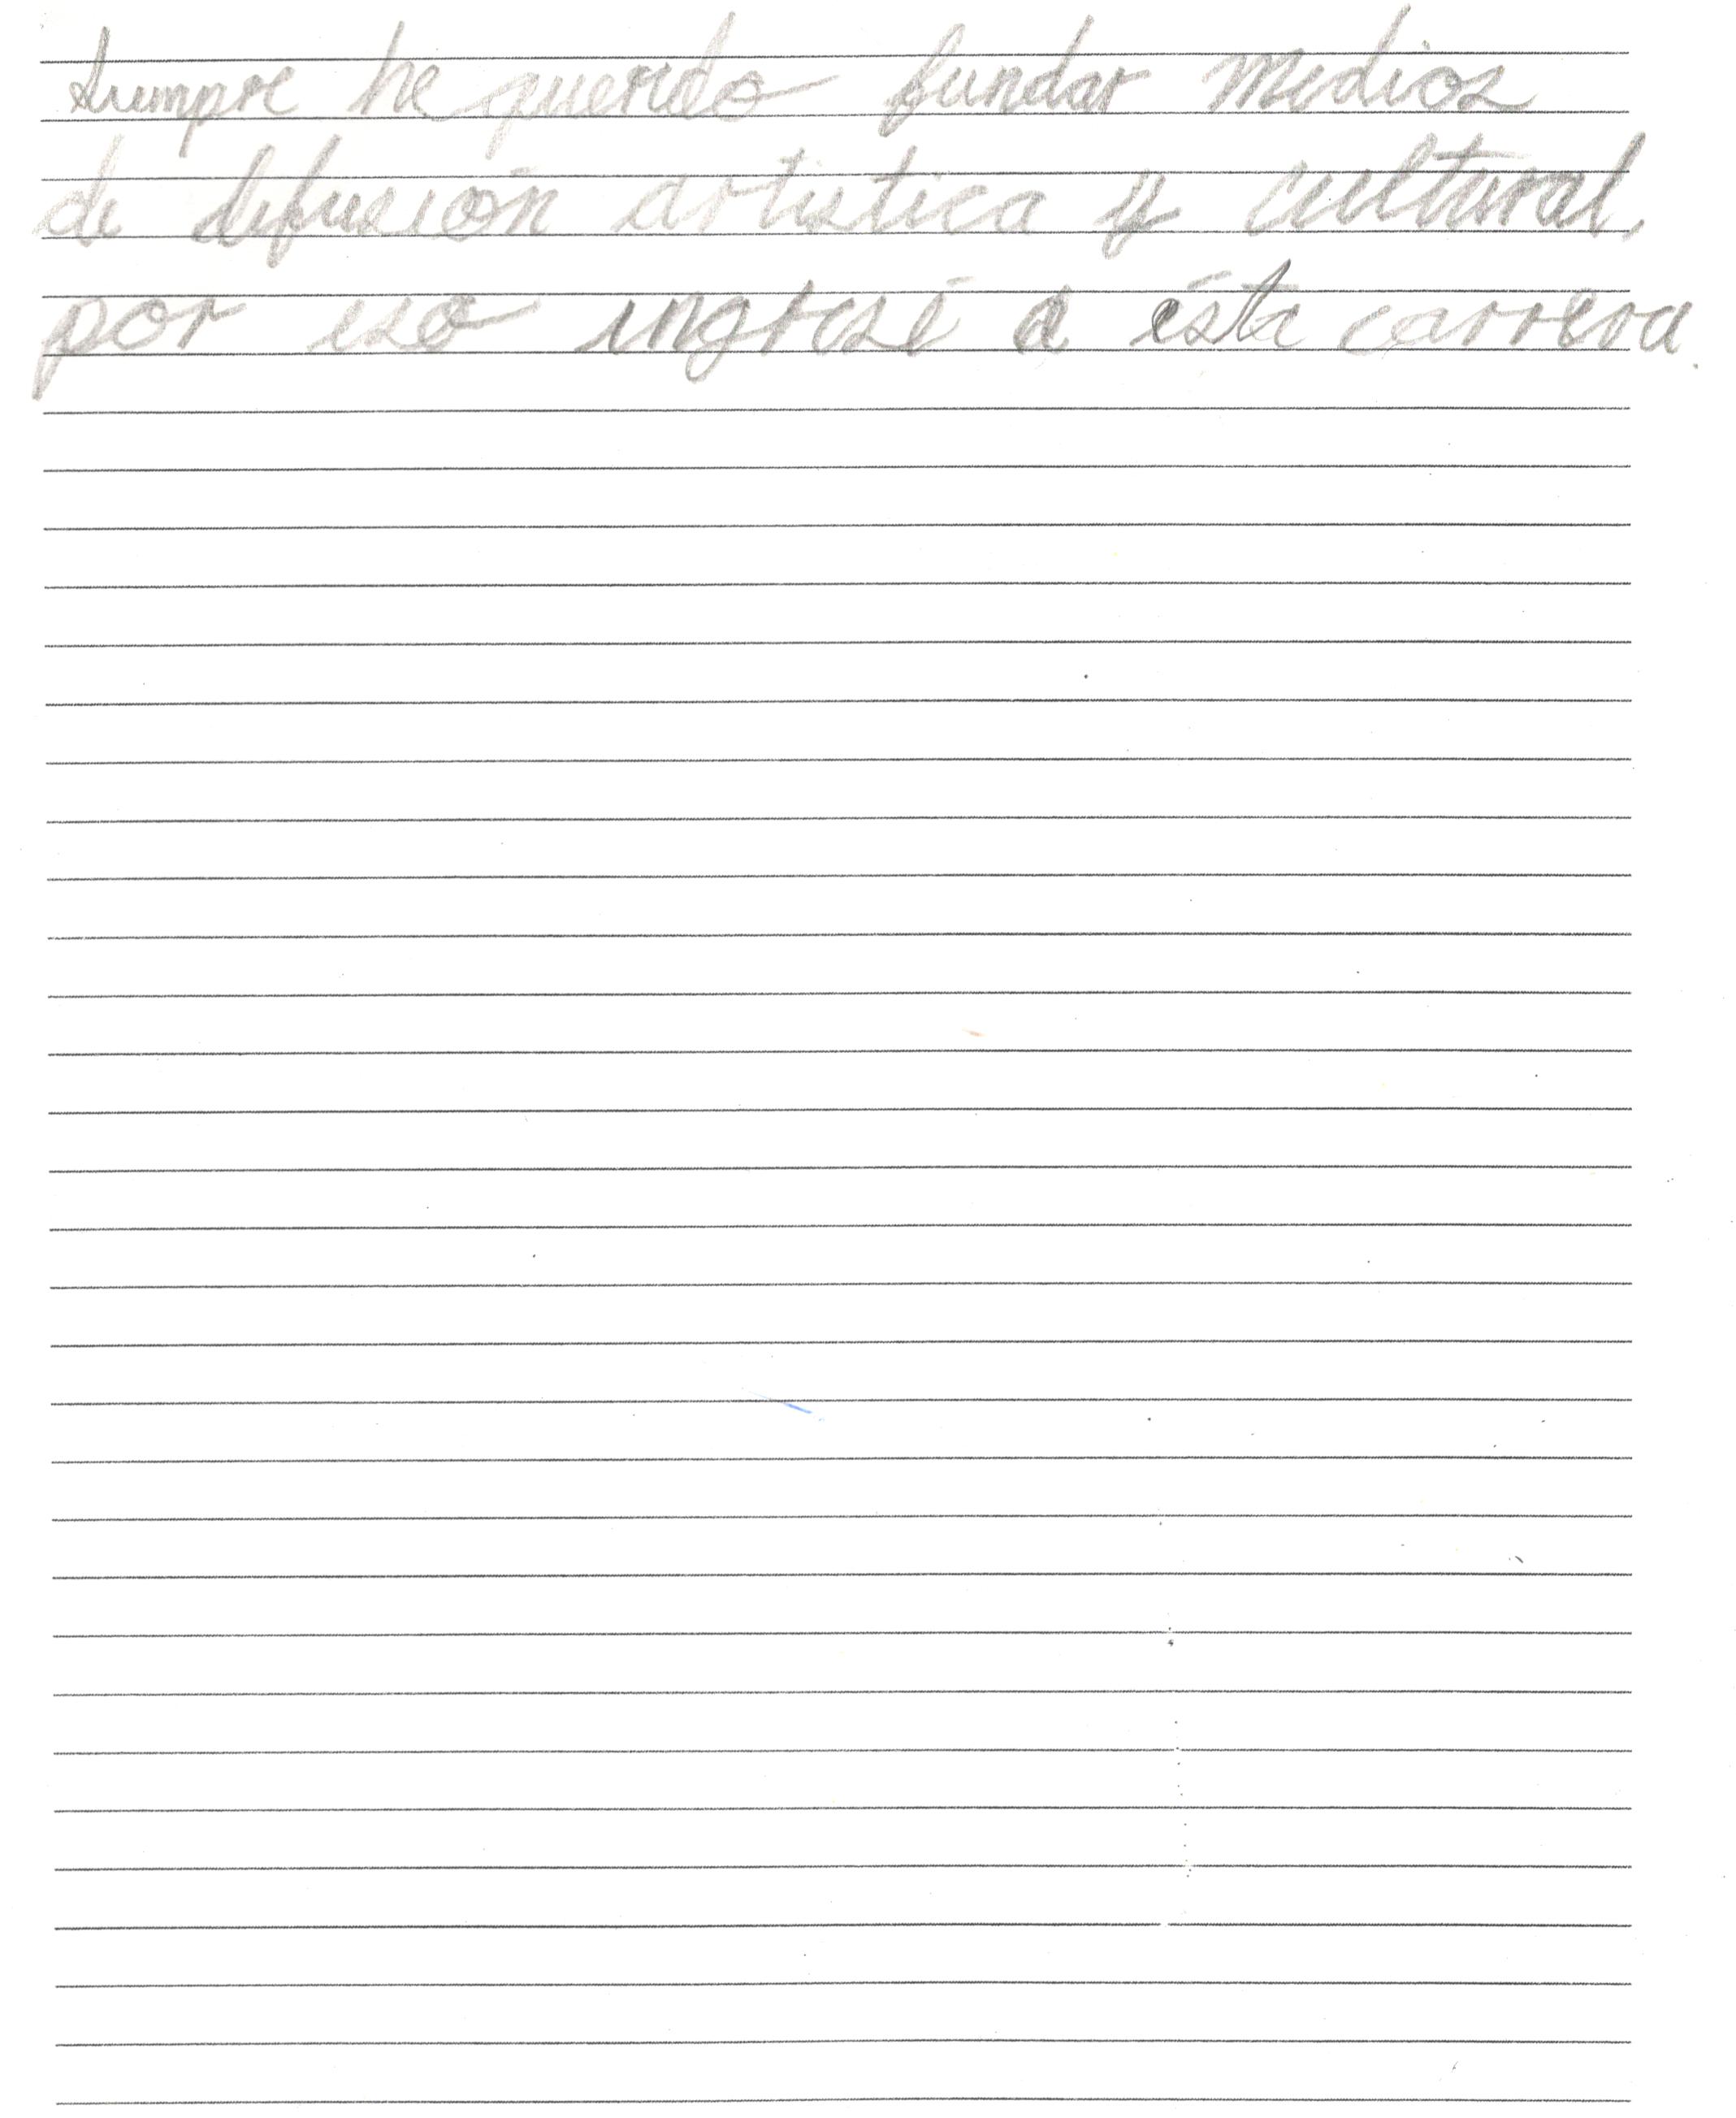 siempre he querido fundar medios
de difusión artística y cultural,
por eso ingresé a ésta carrera.